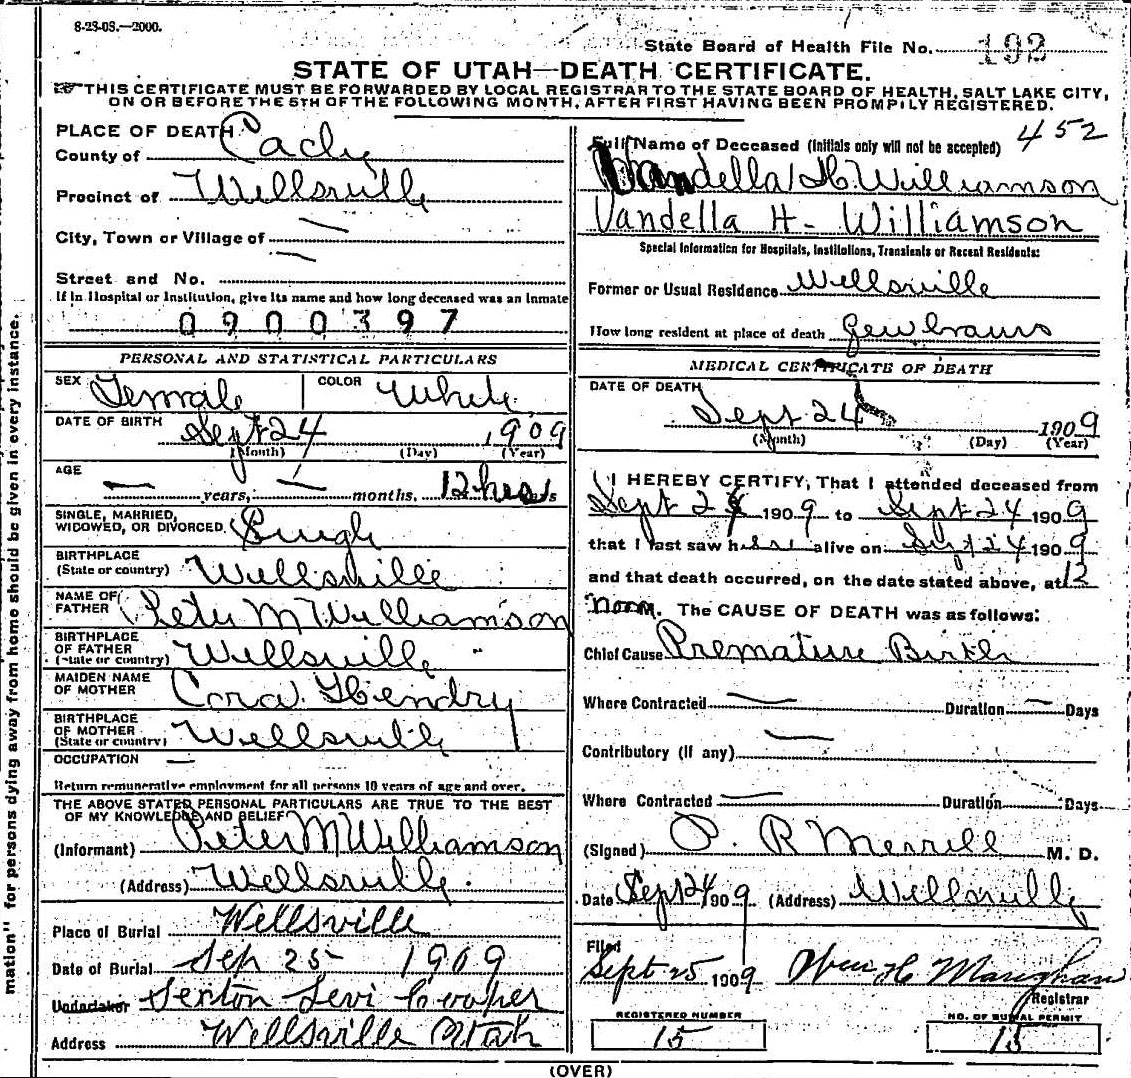 8-28-08.—2000.
State Board of Health File No. 192
STATE OF UTAH—DEATH CERTIFICATE.
THIS CERTIFICATE MUST BE FORWARDED BY LOCAL REGISTRAR TO THE STATE BOARD OF HEALTH, SALT LAKE CITY,
ON OR BEFORE THE 5TH OF THE FOLLOWING MONTH, AFTER FIRST HAVING BEEN PROMPTLY REGISTERED.
mation" for persons dying away from home should be given in every instance.
PLACE OF DEATH
County of Cache
Precinct of Wellsville
City, Town or Village of —
Street and No. —
If in Hospital or Institution, give its name and how long deceased was an inmate
0900397
PERSONAL AND STATISTICAL PARTICULARS
SEX Female COLOR White
DATE OF BIRTH Sept 24 1909
(Month) (Day) (Year)
AGE — years, — months, 12 hrs
SINGLE, MARRIED,
WIDOWED, OR DIVORCED Single
BIRTHPLACE
(State or country) Wellsville
NAME OF
FATHER Peter M Williamson
BIRTHPLACE
OF FATHER
(State or country) Wellsville
MAIDEN NAME
OF MOTHER Cora Hendry
BIRTHPLACE
OF MOTHER
(State or country) Wellsville
OCCUPATION —
Return remunerative employment for all persons 10 years of age and over.
THE ABOVE STATED PERSONAL PARTICULARS ARE TRUE TO THE BEST
OF MY KNOWLEDGE AND BELIEF
(Informant) Peter M Williamson
(Address) Wellsville
Place of Burial Wellsville
Date of Burial Sep 25 1909
Undertaker Sexton Levi Cooper
Address Wellsville Utah
452
Full Name of Deceased (Initials only will not be accepted)
Vandella H Williamson
Vandella H- Williamson
Special Information for Hospitals, Institutions, Transients or Recent Residents:
Former or Usual Residence Wellsville
How long resident at place of death few hours
MEDICAL CERTIFICATE OF DEATH
DATE OF DEATH
Sept 24 1909
(Month) (Day) (Year)
I HEREBY CERTIFY, That I attended deceased from
Sept 24 1909 to Sept 24 1909
that I last saw her alive on Sept 24 1909
and that death occurred, on the date stated above, at 12
noon M. The CAUSE OF DEATH was as follows:
Chief Cause Premature Birth
Where Contracted — Duration — Days
Contributory (if any) —
Where Contracted — Duration Days
(Signed) P. R Merrill M. D.
Date Sept 24 1909 (Address) Wellsville
Filed
Sept 25 1909 Wm H Maughan
Registrar
REGISTERED NUMBER
15
NO. OF BURIAL PERMIT
15
(OVER)